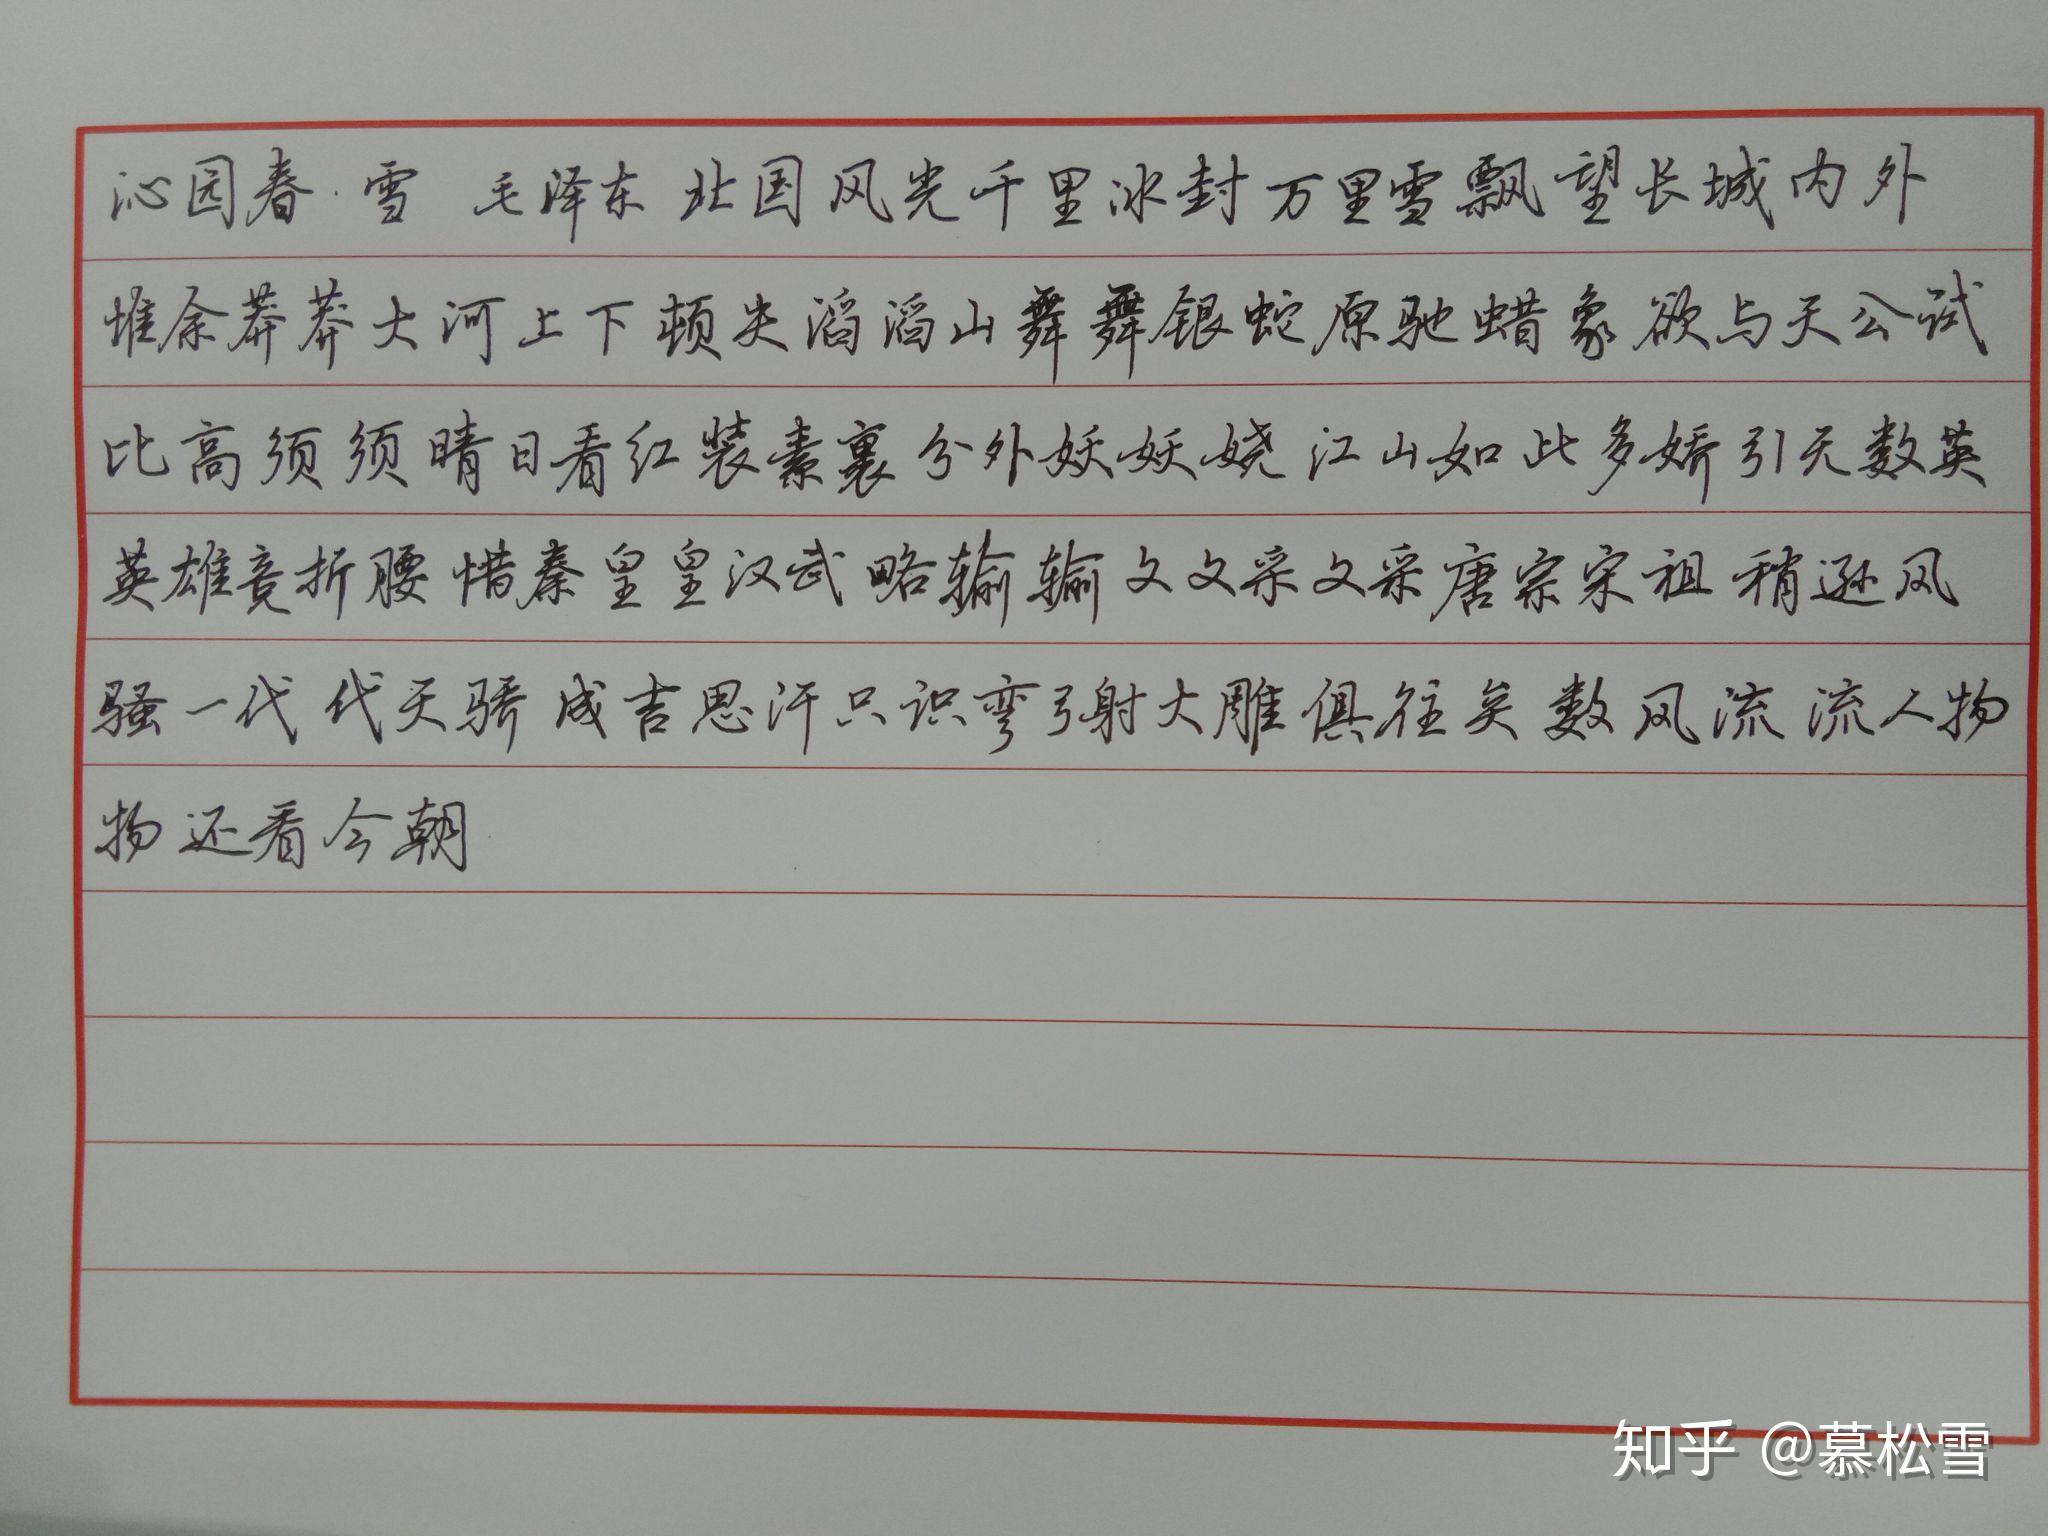 沁园春·雪 毛泽东 北国风光千里冰封万里雪飘望长城内外
惟余莽莽大河上下顿失滔滔山舞舞银蛇原驰蜡象欲与天公试
比高须须晴日看红装素裹分外妖妖娆江山如此多娇引无数英
英雄竞折腰惜秦皇皇汉武略输输文文采文采唐宗宋祖稍逊风
骚一代代天骄成吉思汗只识弯弓射大雕俱往矣数风流流人物
物还看今朝
知乎 @慕松雪